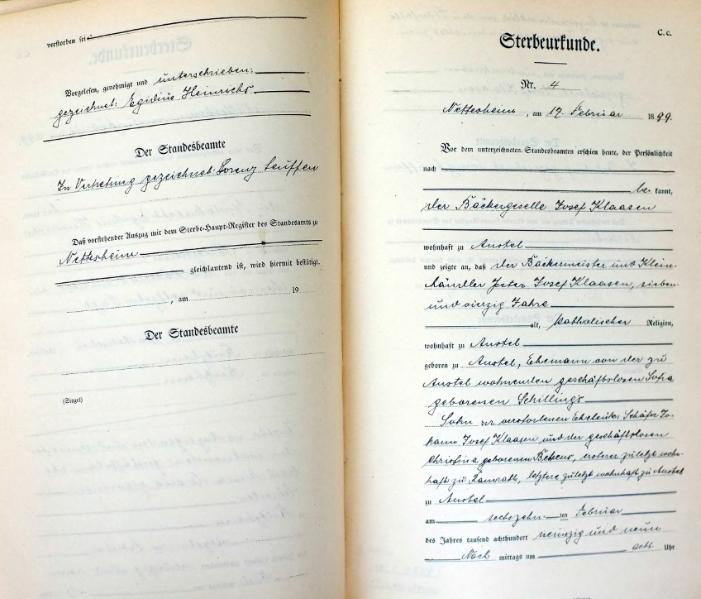 verstorben sei
Vorgelesen, genehmigt und unterschrieben:
gezeichnet: Egidius Heinrichs
Der Standesbeamte
In Vertretung gezeichnet: Lorenz Leuffen
Daß vorstehender Auszug mit dem Sterbe-Haupt-Register des Standesamts zu
Nettesheim
gleichlautend ist, wird hiermit bestätigt.
, am 19
Der Standesbeamte
(Siegel)
C. c.
Sterbeurkunde.
Nr. 4
Nettesheim, am 17. Februar 1899.
Vor dem unterzeichneten Standesbeamten erschien heute, der Persönlichkeit
nach
be kannt,
der Bäckergeselle Josef Klaasen
wohnhaft zu Anstel
und zeigte an, daß der Bäckermeister und Klein-
händler Peter Josef Klaasen, sieben
und vierzig Jahre
alt, katholischer Religion,
wohnhaft zu Anstel
geboren zu Anstel, Ehemann von der zu
Anstel wohnenden geschäftslosen Sofia
geborenen Schillings
Sohn der verstorbenen Eheleute Schäfer Jo-
hann Josef Klaasen und der geschäftslosen
Christina geborenen erstere zuletzt wohn-
haft zu Ramrath, letztere zuletzt wohnhaft zu Anstel
zu Anstel
am sechszehn ten Februar
des Jahres tausend achthundert neunzig und neun
Nach mittags um acht Uhr